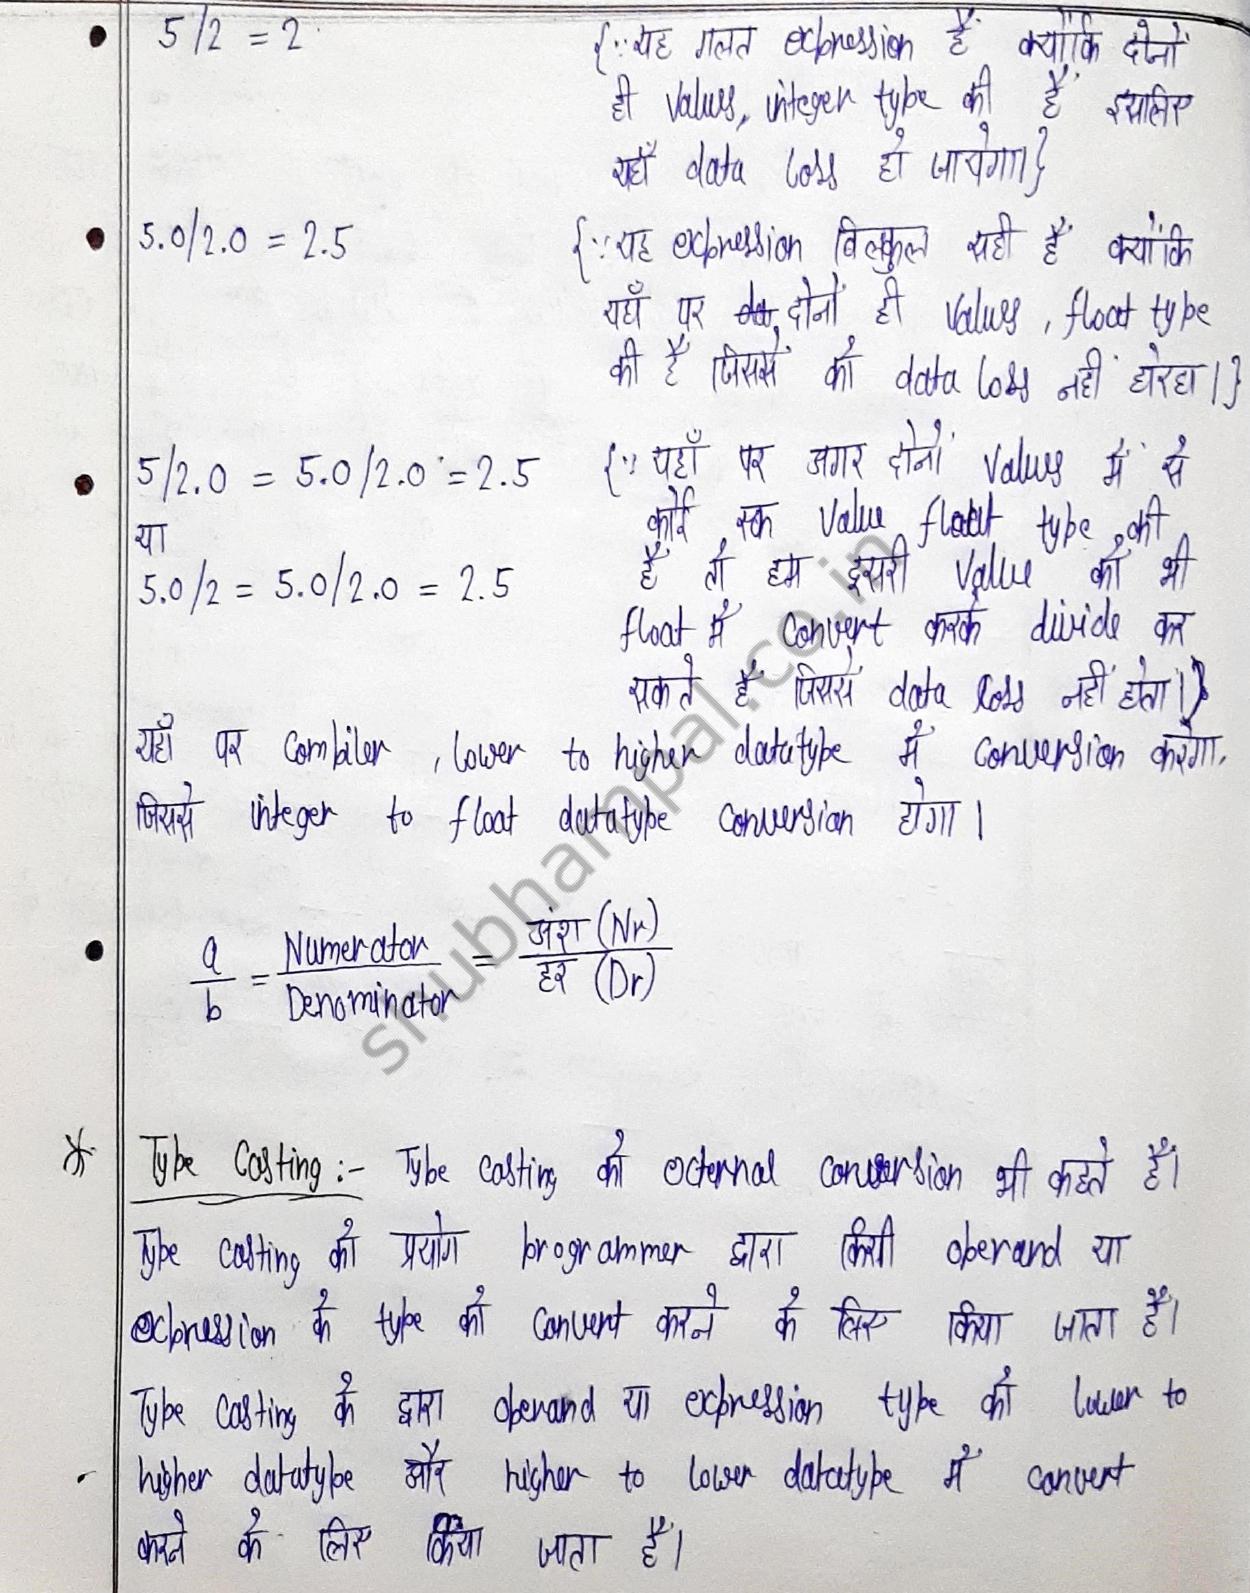 5/2 = 2
{∵ यह गलत expression है क्योंकि दोनों
ही values, integer type की हैं इसलिए
यहाँ data loss हो जायेगा।}
5.0/2.0 = 2.5
{∵ यह expression बिल्कुल सही है क्योंकि
यहाँ पर दोनों ही values, float type
की है जिससे की data loss नहीं होरहा।}
5/2.0 = 5.0/2.0 = 2.5
या
5.0/2 = 5.0/2.0 = 2.5
{∵ यहाँ पर अगर दोनों values में से
कोई एक value float type की
है तो हम दूसरी value को भी
float में convert करके divide कर
सकते हैं जिससे data loss नहीं होता।}
यहाँ पर compiler, lower to higher datatype में conversion करेगा,
जिससे integer to float datatype conversion होगा।
a/b = Numerator/Denominator = अंश (Nr)/हर (Dr)
* Type Casting :- Type casting को external conversion भी कहते हैं।
Type casting को प्रयोग programmer द्वारा किसी operand या
expression के type को convert करने के लिए किया जाता है।
Type casting के द्वारा operand या expression type को lower to
higher datatype और higher to lower datatype में convert
करने के लिए किया जाता है।
shubhampal.co.in